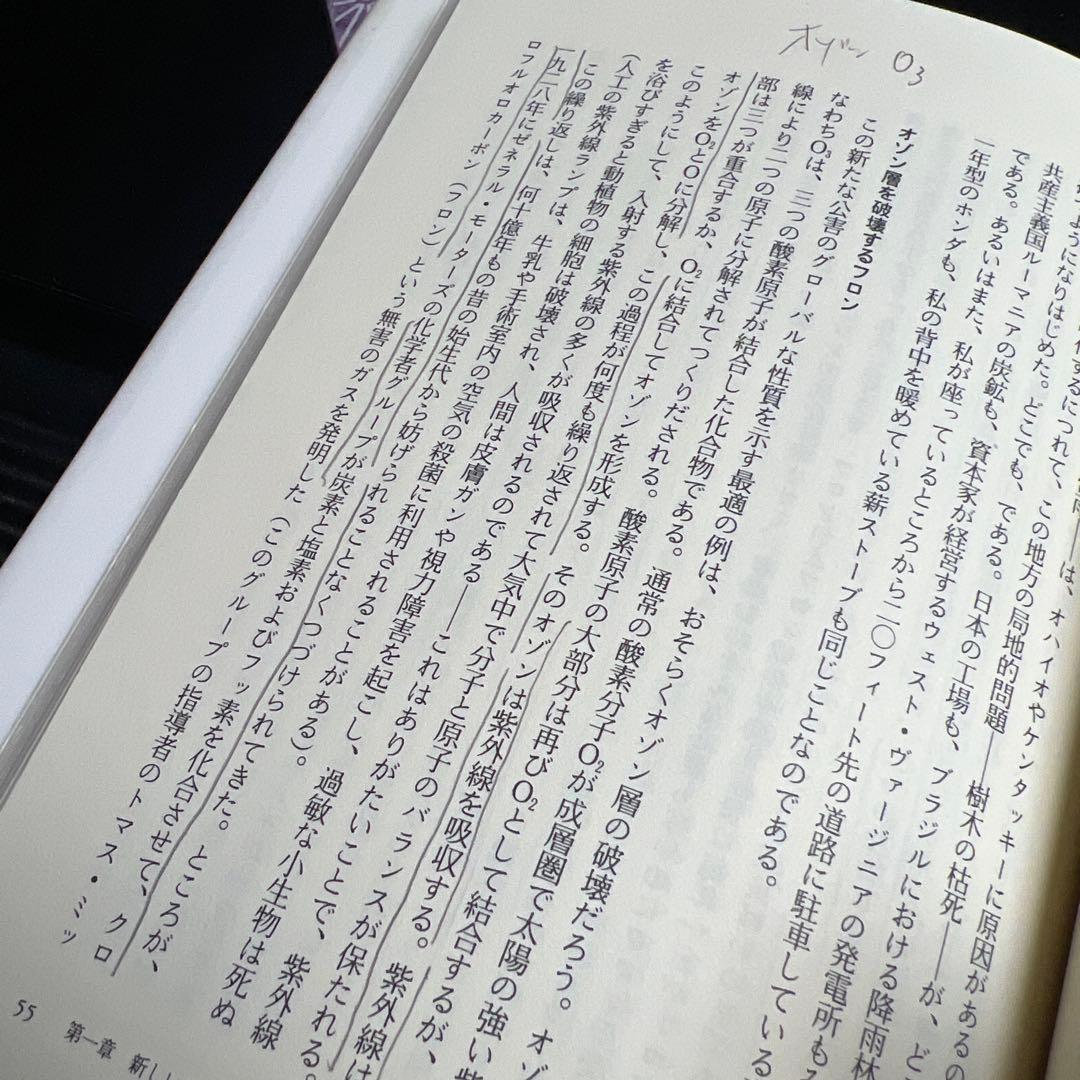 オゾン O3
ようになりはじめた。どこでも、である。日本の工場も、ブラジルにおける降雨林
は、オハイオやケンタッキーに原因があるの
共産主義国ルーマニアの炭鉱も、資本家が経営するウェスト・ヴァージニアの発電所も
この地方の局地的問題――樹木の枯死――が、ど
である。あるいはまた、私が座っているところから二〇フィート先の道路に駐車している
一年型のホンダも、私の背中を暖めている薪ストーブも同じことなのである。
オゾン層を破壊するフロン
この新たな公害のグローバルな性質を示す最適の例は、おそらくオゾン層の破壊だろう。オゾ
なわちO₃は、三つの酸素原子が結合した化合物である。通常の酸素分子O₂が成層圏で太陽の強い紫
線により二つの原子に分解されてつくりだされる。酸素原子の大部分は再びO₂として結合するが、
部は三つが重合するか、O₂に結合してオゾンを形成する。そのオゾンは紫外線を吸収する。紫外線は
オゾンをO₂とOに分解し、この過程が何度も繰り返されて大気中で分子と原子のバランスが保たれる。
このようにして、入射する紫外線の多くが吸収されるのである――これはありがたいことで、紫外線
を浴びすぎると動植物の細胞は破壊され、人間は皮膚ガンや視力障害を起こし、過敏な小生物は死ぬ
（人工の紫外線ランプは、牛乳や手術室内の空気の殺菌に利用されることがある）。
この繰り返しは、何十億年もの昔の始生代から妨げられることなくつづけられてきた。ところが、
一九二八年にゼネラル・モーターズの化学者グループが炭素と塩素およびフッ素を化合させて、クロ
ロフルオロカーボン（フロン）という無害のガスを発明した（このグループの指導者のトマス・ミッ
55 第一章 新し